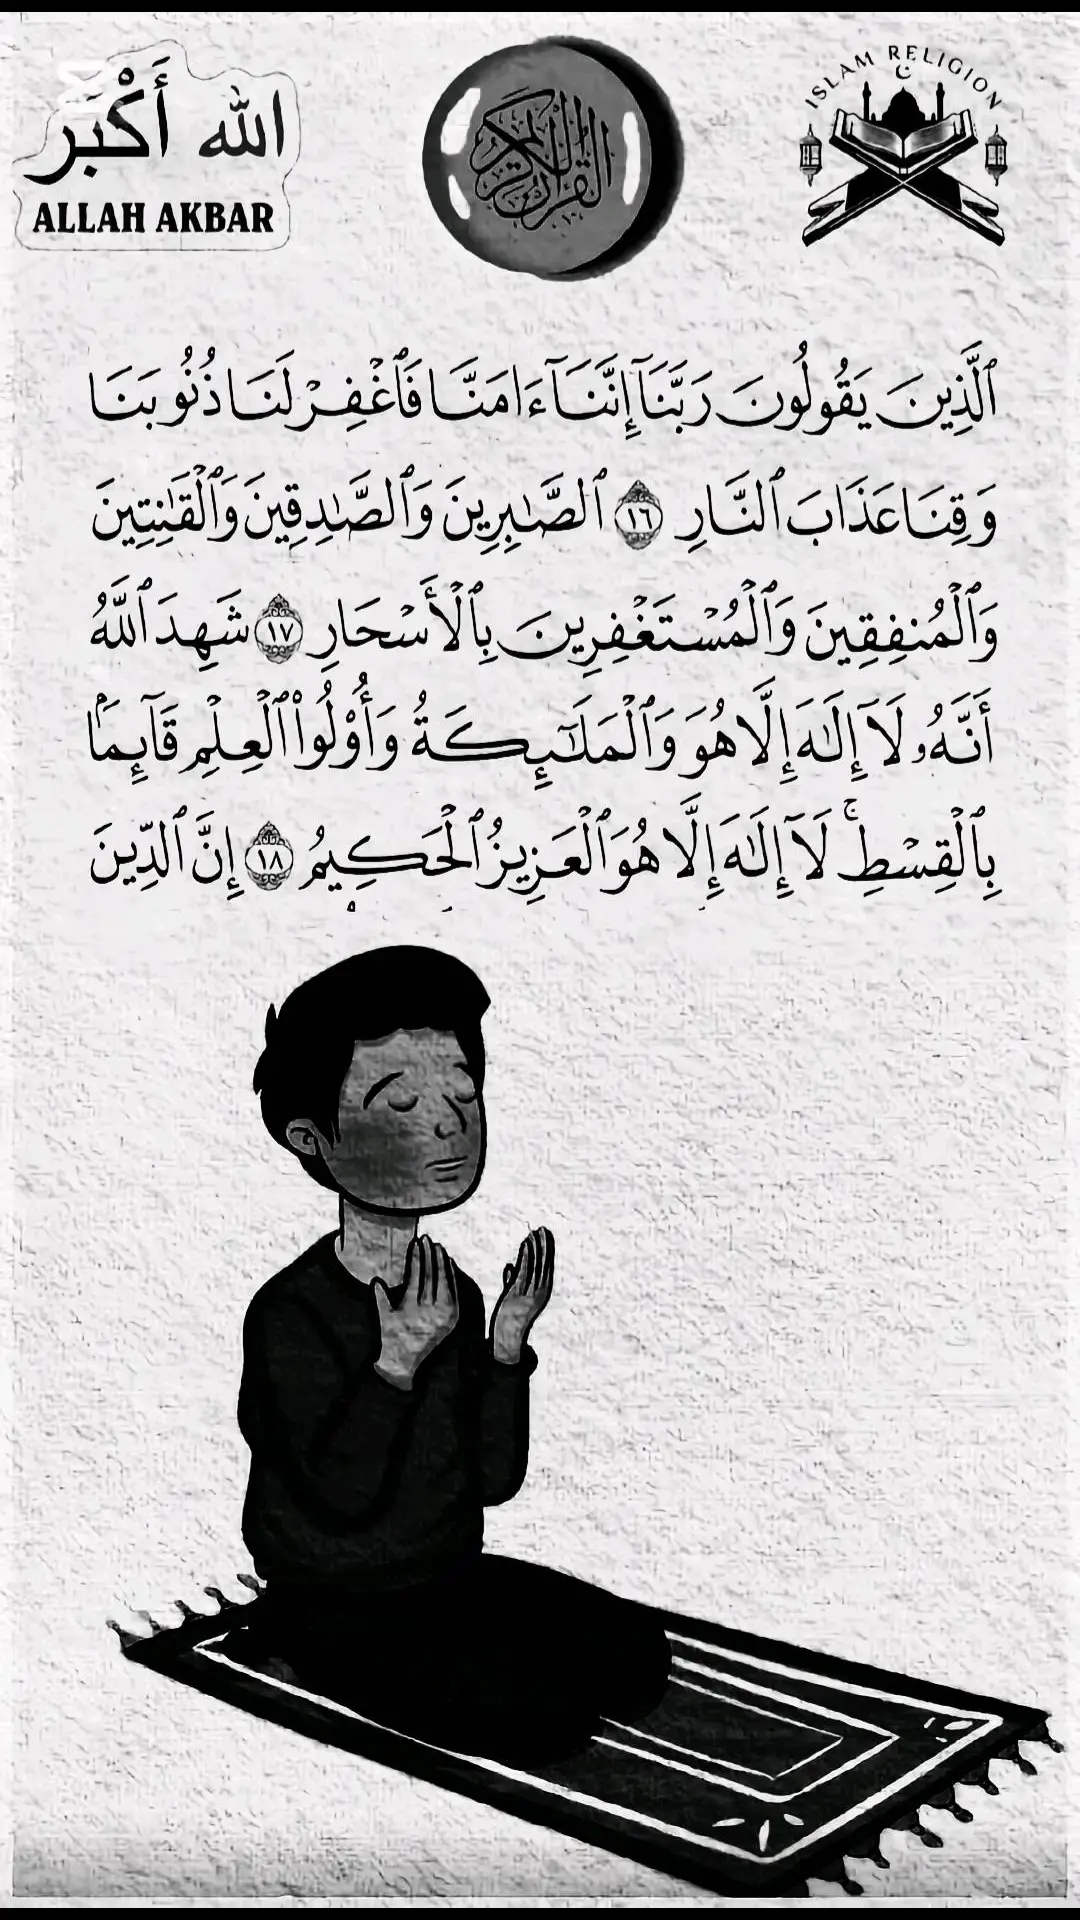 الله أَكْبَر
ALLAH AKBAR
القرآن الكريم
ISLAM RELIGION
ٱلَّذِينَ يَقُولُونَ رَبَّنَآ إِنَّنَآ ءَامَنَّا فَٱغْفِرْ لَنَا ذُنُوبَنَا
وَقِنَا عَذَابَ ٱلنَّارِ ١٦ ٱلصَّٰبِرِينَ وَٱلصَّٰدِقِينَ وَٱلْقَٰنِتِينَ
وَٱلْمُنفِقِينَ وَٱلْمُسْتَغْفِرِينَ بِٱلْأَسْحَارِ ١٧ شَهِدَ ٱللَّهُ
أَنَّهُۥ لَآ إِلَٰهَ إِلَّا هُوَ وَٱلْمَلَٰٓئِكَةُ وَأُو۟لُوا۟ ٱلْعِلْمِ قَآئِمَۢا
بِٱلْقِسْطِ ۚ لَآ إِلَٰهَ إِلَّا هُوَ ٱلْعَزِيزُ ٱلْحَكِيمُ ١٨ إِنَّ ٱلدِّينَ